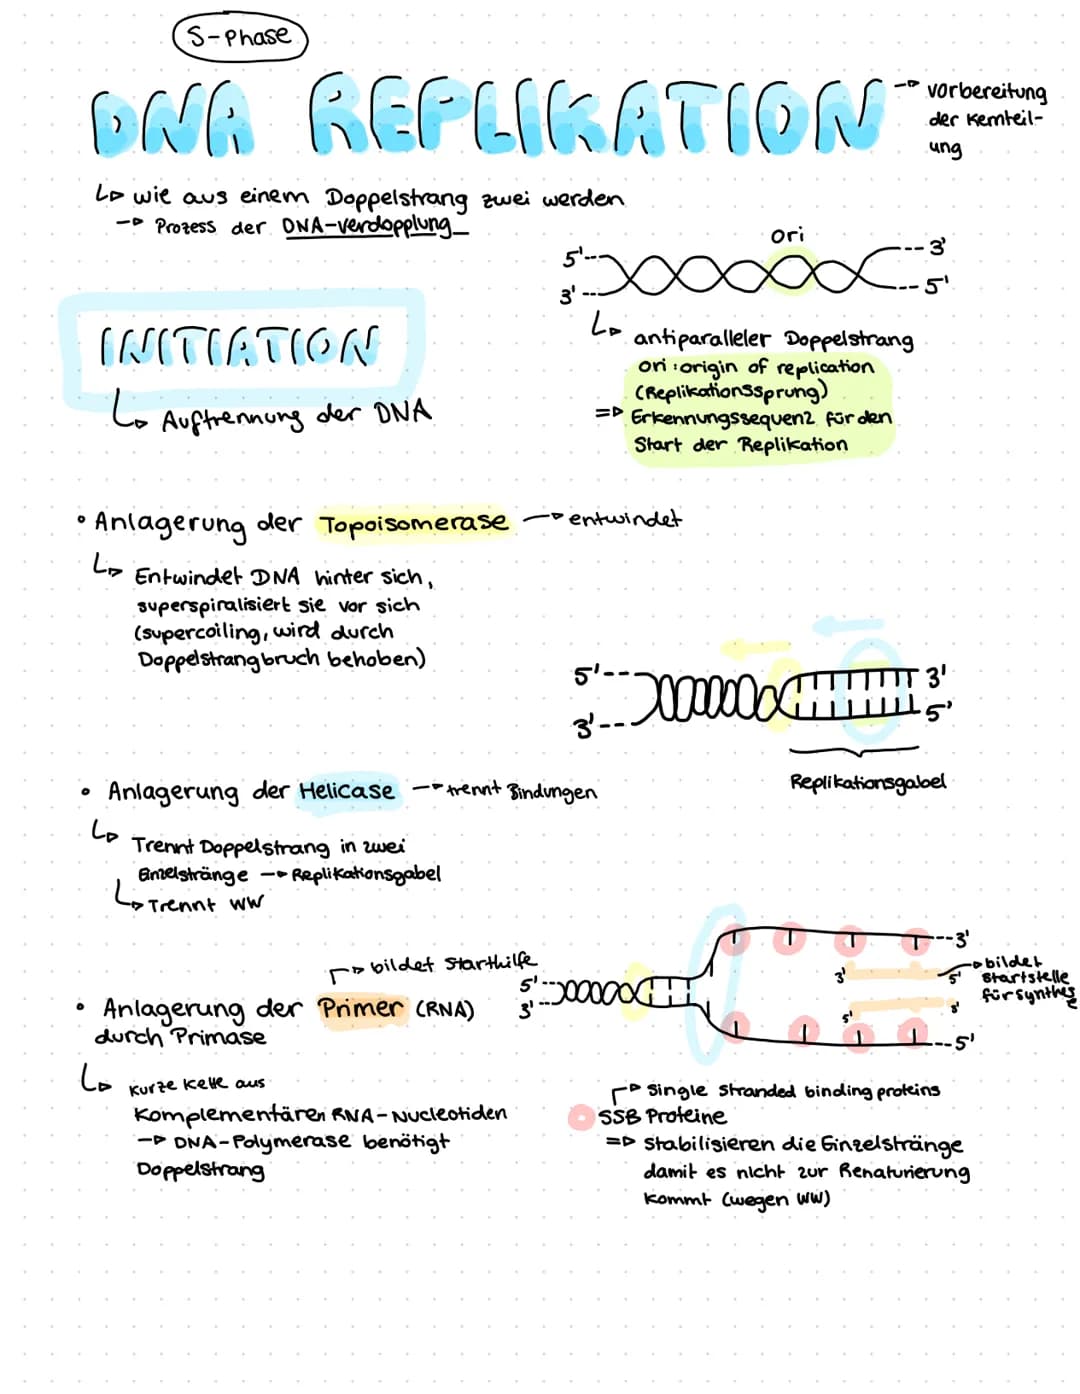 S-Phase
DNA REPLIKATION
-> vorbereitung
der Kernteil-
ung
↳ wie aus einem Doppelstrang zwei werden
-> Prozess der DNA-verdopplung
ori
5'--- ---3'
3'--- ---5'
INITIATION
↳ Auftrennung der DNA
↳ antiparalleler Doppelstrang
ori: origin of replication
(ReplikationsSprung)
=> Erkennungssequenz für den
Start der Replikation
• Anlagerung der Topoisomerase -> entwindet
↳ Entwindet DNA hinter sich,
superspiralisiert sie vor sich
(supercoiling, wird durch
Doppelstrangbruch behoben)
5'--- 3'
3'--- 5'
Replikationsgabel
• Anlagerung der Helicase -> trennt Bindungen
↳ Trennt Doppelstrang in zwei
Einzelstränge -> Replikationsgabel
↳ Trennt WW
-> bildet Starthilfe
• Anlagerung der Primer (RNA)
durch Primase
↳ Kurze Kette aus
Komplementären RNA-Nucleotiden
-> DNA-Polymerase benötigt
Doppelstrang
5'--- ---3'
3'--- ---5'
3' 5'
5' 3'
-> bildet
Startstelle
für Synthes
-> Single stranded binding proteins
SSB Proteine
=> Stabilisieren die Einzelstränge
damit es nicht zur Renaturierung
kommt (wegen WW)